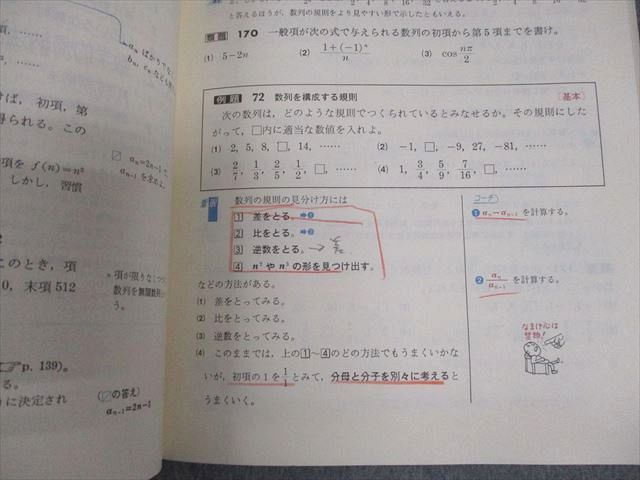 と答えるほうが，数列の規則をより見やすい形で示したともいえる。
類題 170 一般項が次の式で与えられる数列の初項から第5項までを書け。
(1) 5−2n (2) 1+(−1)ⁿ/n (3) cos nπ/2
例題 72 数列を構成する規則 基本
次の数列は，どのような規則でつくられているとみなせるか。その規則にした
がって，□内に適当な数値を入れよ。
(1) 2, 5, 8, □, 14, …… (2) −1, □, −9, 27, −81, ……
(3) 2/7, 1/3, 2/5, 1/2, □, …… (4) 1, 3/4, 5/9, 7/16, □, ……
数列の規則の見分け方には
1 差をとる。➡❶
2 比をとる。➡❷
3 逆数をとる。→差
4 n²やn³の形を見つけ出す。
などの方法がある。
(1) 差をとってみる。
(2) 比をとってみる。
(3) 逆数をとってみる。
(4) このままでは，上の1〜4のどの方法でもうまくいかな
いが，初項の1を1/1とみて，分母と分子を別々に考えると
うまくいく。
コーチ
❶ aₙ−aₙ₋₁を計算する。
❷ aₙ/aₙ₋₁を計算する。
なまけ心は
禁物!
けば，初項，第
得られる。この
項を f(n)=n²
しかし，習慣
このとき，項
0，末項 512
p. 139)。
る。
に決定され
aₙ ばかりでな
aₙ=2n−1 で
aₙ₋₁ を求めよ。
*項が限りなくつづく
数列を無限数列
う。
(の答え)
aₙ₋₁=2n−3